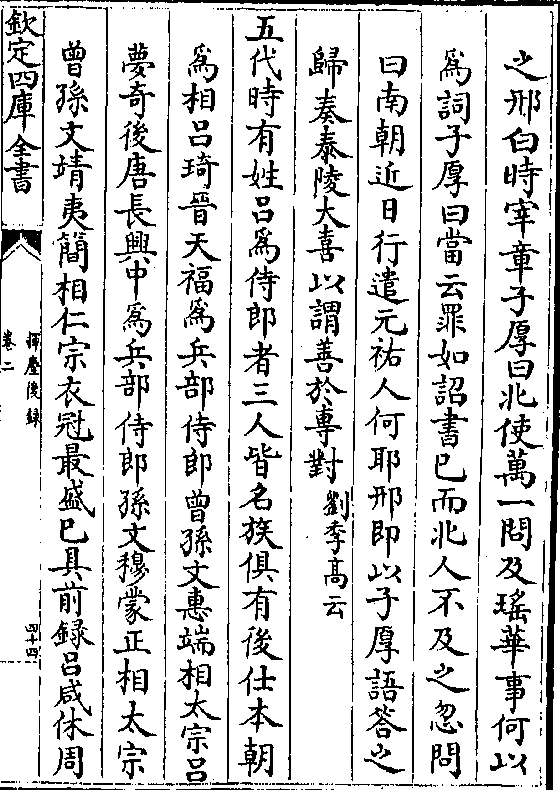 之邢白時宰章子厚曰北使萬一問及瑤華事何以
為詞子厚曰當云罪如詔書已而北人不及之忽問
曰南朝近日行遣元祐人何耶邢即以子厚語答之
歸奏泰陵大喜以謂善於專對劉季高云
五代時有姓吕為侍郎者三人皆名族俱有後仕本朝
為相吕琦晉天福為兵部侍郎曾孫文惠端相太宗吕
夢奇後唐長興中為兵部侍郎孫文穆蒙正相太宗
曾孫文靖夷簡相仁宗衣冠最盛已具前錄吕咸休周
欽定四庫全書
揮麈後錄
卷二
四十四